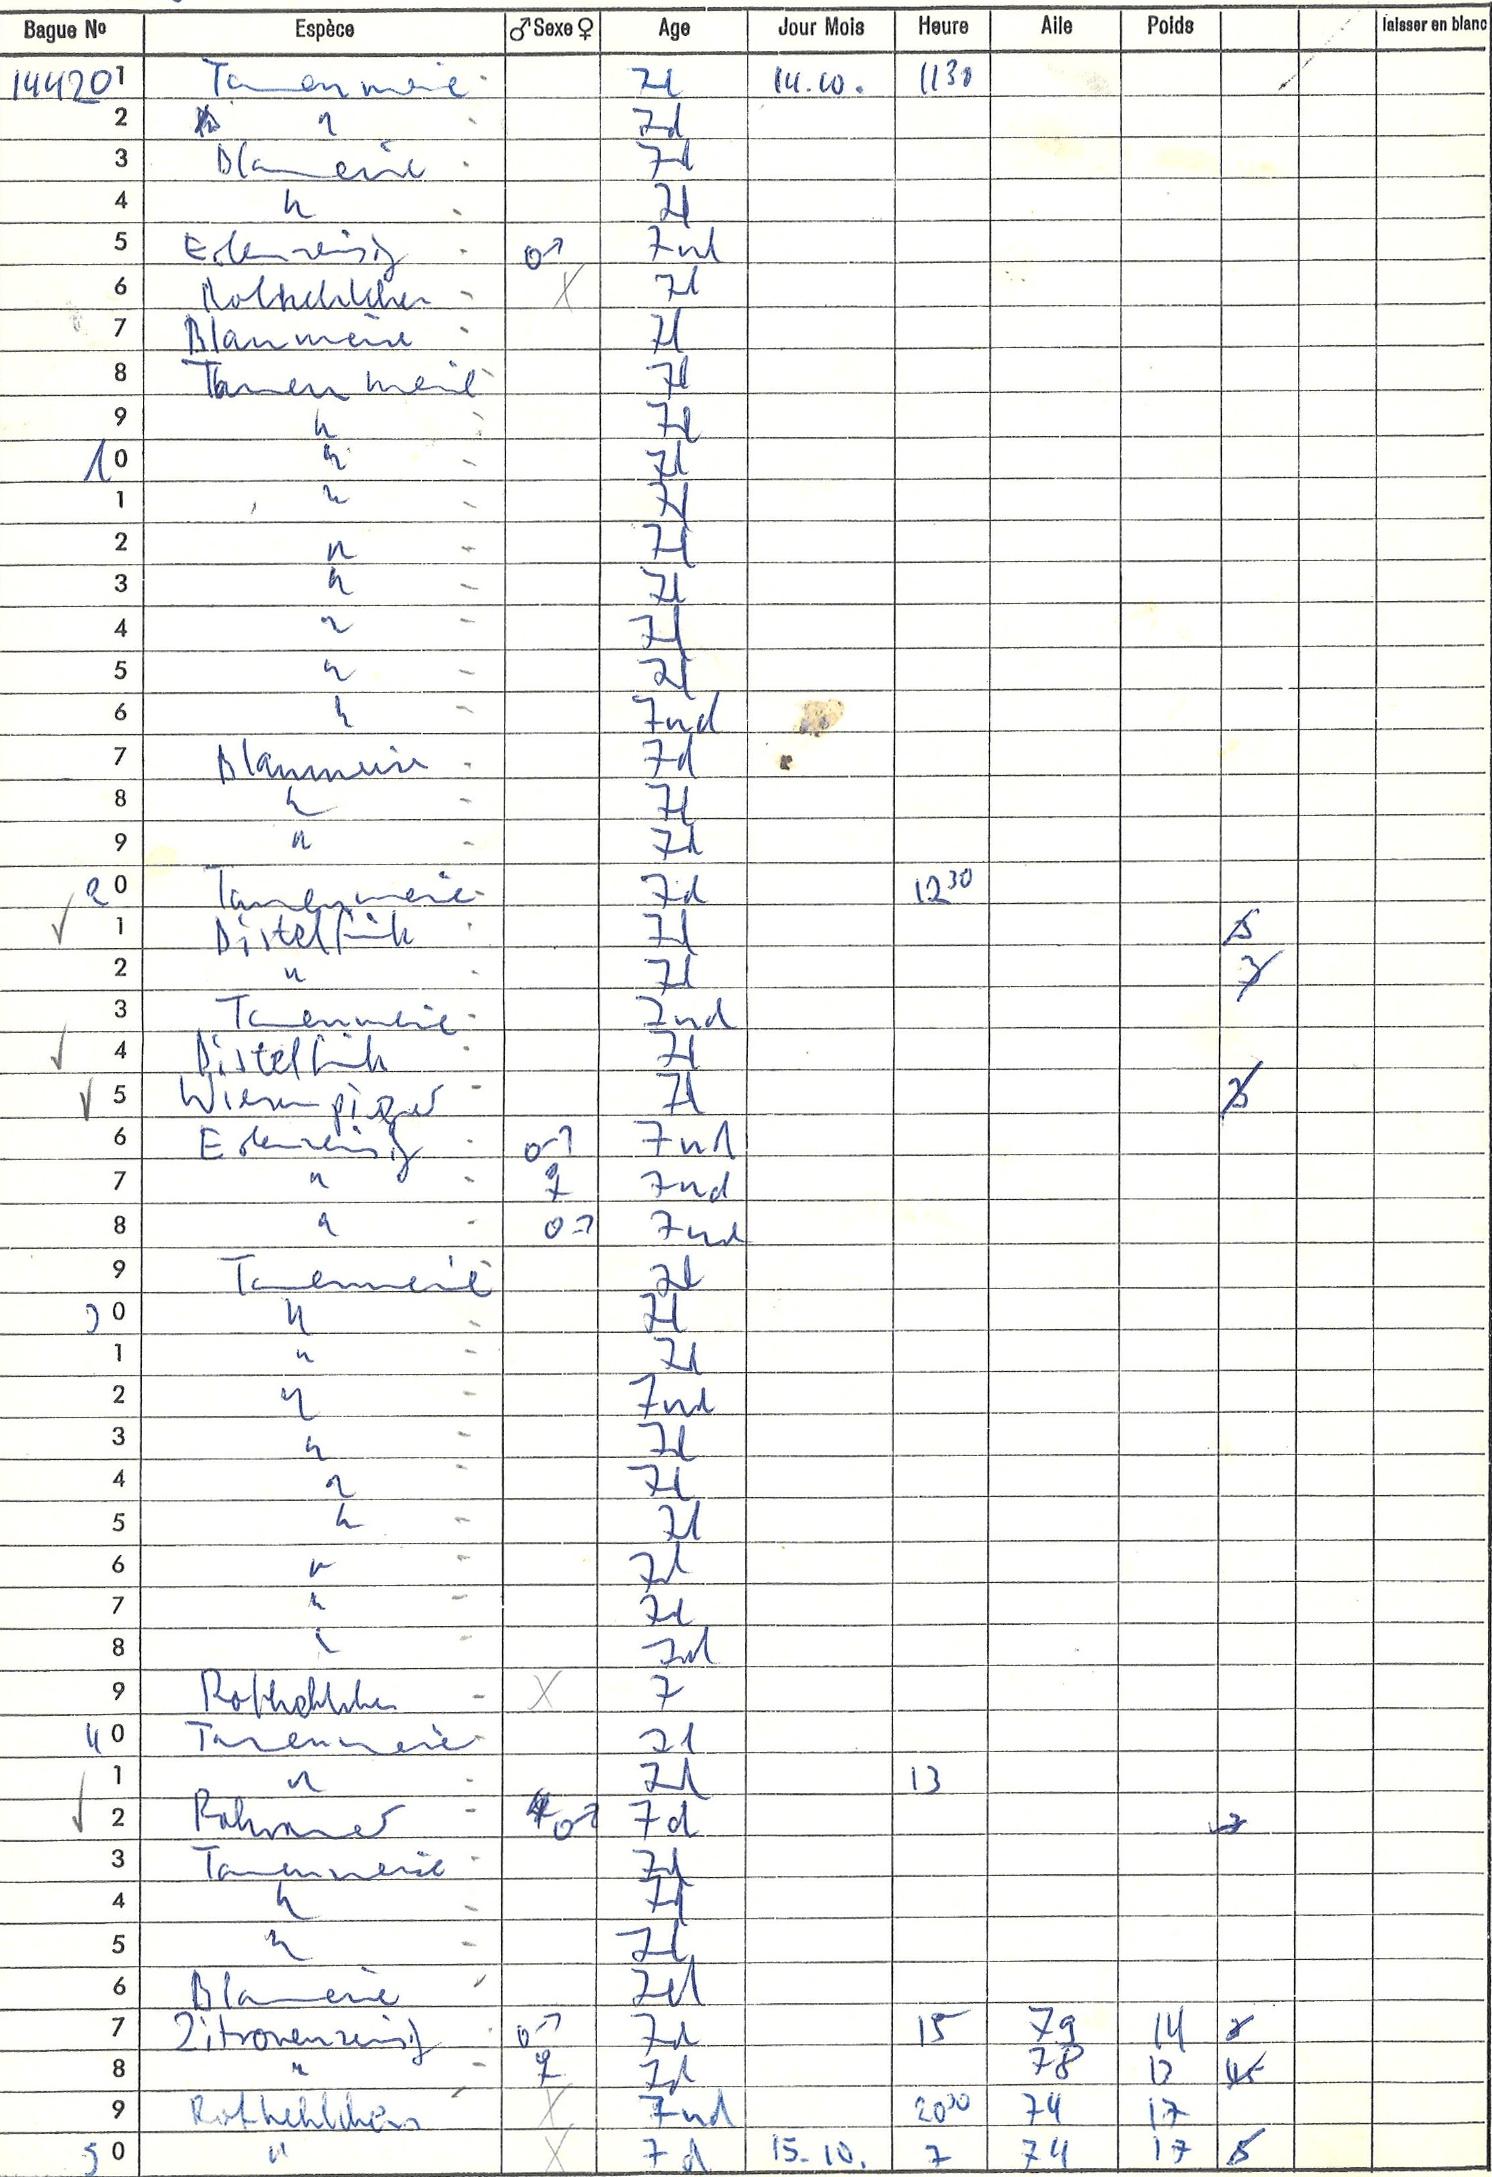 Bague No Espèce ♂ Sexe ♀ Age Jour Mois Heure Aile Poids laisser en blanc
144201 Tannenmeise 7d 14.10. 1130
2 " 7d
3 Blaumeise 7d
4 " 7d
5 Erlenzeisig ♂ 7nd
6 Rotkehlchen X 7d
7 Blaumeise 7d
8 Tannenmeise 7d
9 " 7d
10 " 7d
1 " 7d
2 " 7d
3 " 7d
4 " 7d
5 " 7d
6 " 7nd
7 Blaumeise 7d
8 " 7d
9 " 7d
20 Tannenmeise 7d 1230
✓ 1 Distelfink 7d
2 " 7d
3 Tannenmeise 7nd
✓ 4 Distelfink 7d
✓ 5 Wiesenpieper 7d
6 Erlenzeisig ♂ 7nd
7 " ♀ 7nd
8 " ♂ 7nd
9 Tannenmeise 7d
30 " 7d
1 " 7d
2 " 7nd
3 " 7d
4 " 7d
5 " 7d
6 " 7d
7 " 7d
8 " 7d
9 Rotkehlchen X 7
40 Tannenmeise 7d
1 " 7d 13
✓ 2 Rohrammer ♂ 7d
3 Tannenmeise 7d
4 " 7d
5 " 7d
6 Blaumeise 7d
7 Zitronenzeisig ♂ 7d 15 79 14
8 " ♀ 7d 78 13
9 Rotkehlchen X 7nd 2000 74 17
50 " X 7d 15.10. 7 74 17